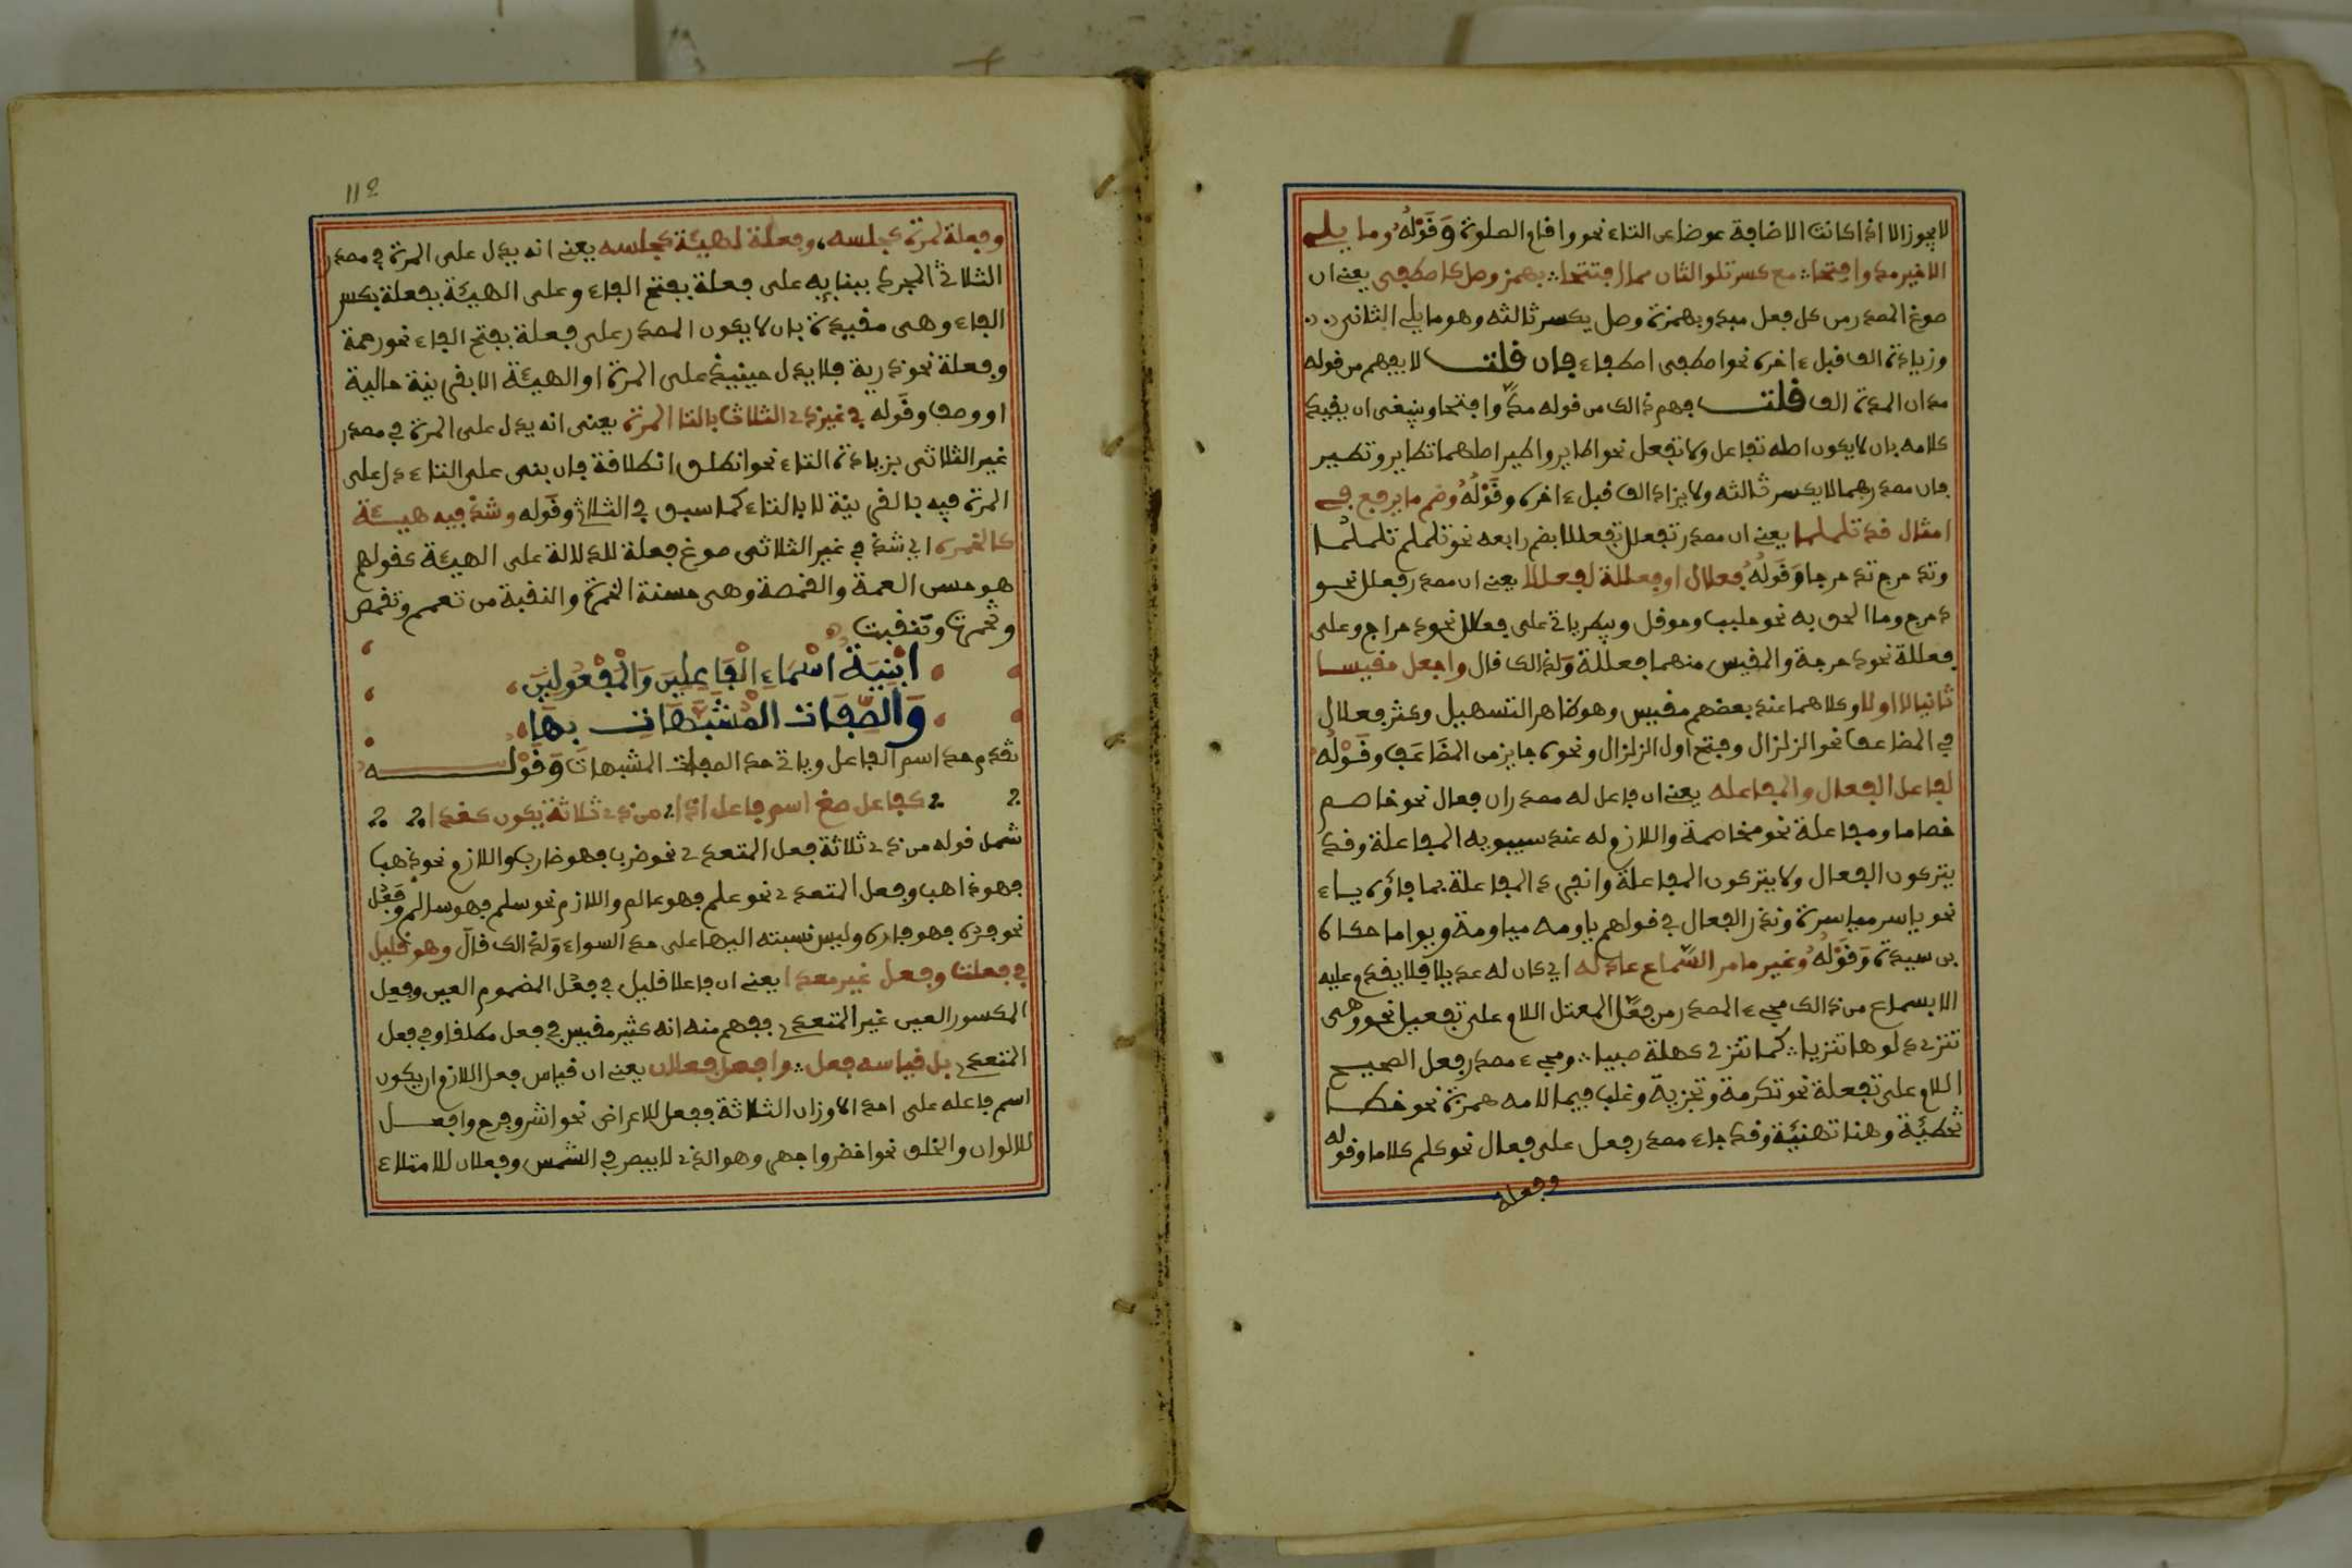 لا يجوز الا اذا كانت الاضافة عوضا عن التاء نحو واقام الصلوة وَقَوْلُهُ وما يلى
الاخير مد وافتحا مع كسر تلو الثان مما افتتحا بهمز وصل كاصطفى يعنى ان
صوغ المصدر من كل فعل مبدو بهمزة وصل يكسر ثالثه وهو ما يلى الثانى
وزيادة الف قبل ءاخره نحو اصطفى اصطفاء فان قلت لا يفهم من قوله
مد ان المدة الف قلت فهم ذالك من قوله مدّ وافتحا وينبغى ان يقيد
كلامه بان لا يكون اصله تفاعل ولا تفعل نحو اطاير واطير اصلهما تطاير وتطير
فان مصدرهما لا يكسر ثالثه ولا يزاد الف قبل ءاخره وقَوْلُهُ وضم ما يربع فى
امثال قد تلملما يعنى ان مصدر تفعلل تفعللا بضم رابعه نحو تلملم تلملما
وتدحرج تدحرجا وَقَولُهُ فعلال او فعللة لفعللا يعنى ان مصدر فعلل نحو
دحرج وما الحق به نحو جلبب وحوقل وبيطر ياتى على فعلال نحو دحراج وعلى
فعللة نحو دحرجة والمقيس منهما فعللة ولذالك قال واجعل مقيسا
ثانيا لا اولا وكلاهما عند بعضهم مقيس وهو ظاهر التسهيل وكثر فعلال
فى المضاعف نحو الزلزال وفتح اول الزلزال ونحوه جايز من المضَاعَف وقَوْلُه
لفاعل الفعال والمفاعله يعنى ان فاعل له مصدران فعال نحو خاصم
خصاما ومفاعلة نحو مخاصمة واللازم له عند سيبويه المفاعلة وقد
يتركون الفعال ولا يتركون المفاعلة وانفرد المفاعلة بما فاؤه ياء
نحو ياسر مياسرة وندر الفعال فى قولهم ياومه مياومة ويواما حكاه
بن سيدة وَقَوْلُهُ وغير ما مر السّماع عادله اى كان له عديلا فلا يقدم عليه
الا بسماع من ذالك مجىء المصدر من فعّل المعتل اللام على تفعيل نحو وهى
تنزى دلوها تنزيا كما تنزى شهلة صبيا ومجىء مصدر فعل الصحيح
اللام على تفعلة نحو تكرمة وتجزية وغلب فيما لامه همزة نحو خطا
تخطيئة وهنا تهنيئة وقد جاء مصدر فعل على فعال نحو كلم كلاما وقوله
وفعلة
١١٩
وفعلة لمرة كجلسه، وفعلة لهيئة كجلسه يعنى انه يدل على المرة فى مصدر
الثلاثى المجرد ببنايه على فعلة بفتح الفاء وعلى الهيئة بفعلة بكسر
الفاء وهى مقيدة بان لا يكون المصدر على فعلة بفتح الفاء نحو رحمة
وفعلة نحو ذرية فلا يدل حينيذ على المرة او الهيئة الا بقرينة حالية
او وصف وقوله فى غير ذى الثلاث بالتا المرة يعنى انه يدل على المرة فى مصدر
غير الثلاثى بزيادة التاء نحو انطلق انطلاقة فان بنى على التاء دل على
المرة فيه بالقرينة لا بالتاء كما سبق فى الثلاثى وقوله وشذ فيه هيئة
كالخمره اى شذ فى غير الثلاثى صوغ فعلة للدلالة على الهيئة كقولهم
هو حسن العمة والقمصة وهى حسنة الخمرة والنقبة من تعمم وتقمص
وتخمرت وتنقبت
ابْنِيَةُ اسْمَاءِ الْفَاعِلِينَ وَالْمَفْعُولِينَ
وَالصِّفَاتِ المُشَبَّهَاتِ بِهَا
تقدم حد اسم الفاعل وياتى حد الصفات المشبهات وَقَوْلـــه
كفاعل صغ اسم فاعل اذا من ذى ثلاثة يكون كغذا
شمل قوله من ذى ثلاثة فعل المتعدى نحو ضرب فهو ضارب واللازم نحو ذهب
فهو ذاهب وفعل المتعدى نحو علم فهو عالم واللازم نحو سلم فهو سالم وفَعُل
نحو فره فهو فاره وليس نسبته اليها على حد السواء ولذالك قال وهو قليل
فى فعلت وفعل غير معدا يعنى ان فاعلا قليل فى فعُل المضموم العين وفعِل
المكسور العين غير المتعدى ففهم منه انه كثير مقيس فى فعل مطلقا وفى فعل
المتعدى بل قياسه فعل وافعل فعلان يعنى ان قياس فعل اللازم ان يكون
اسم فاعله على احد الاوزان الثلاثة ففعل للاعراض نحو اشر وفرح وافعل
للالوان والخلق نحو اخضر واجهر وهو الذى لا يبصر فى الشمس وفعلان للامتلاء